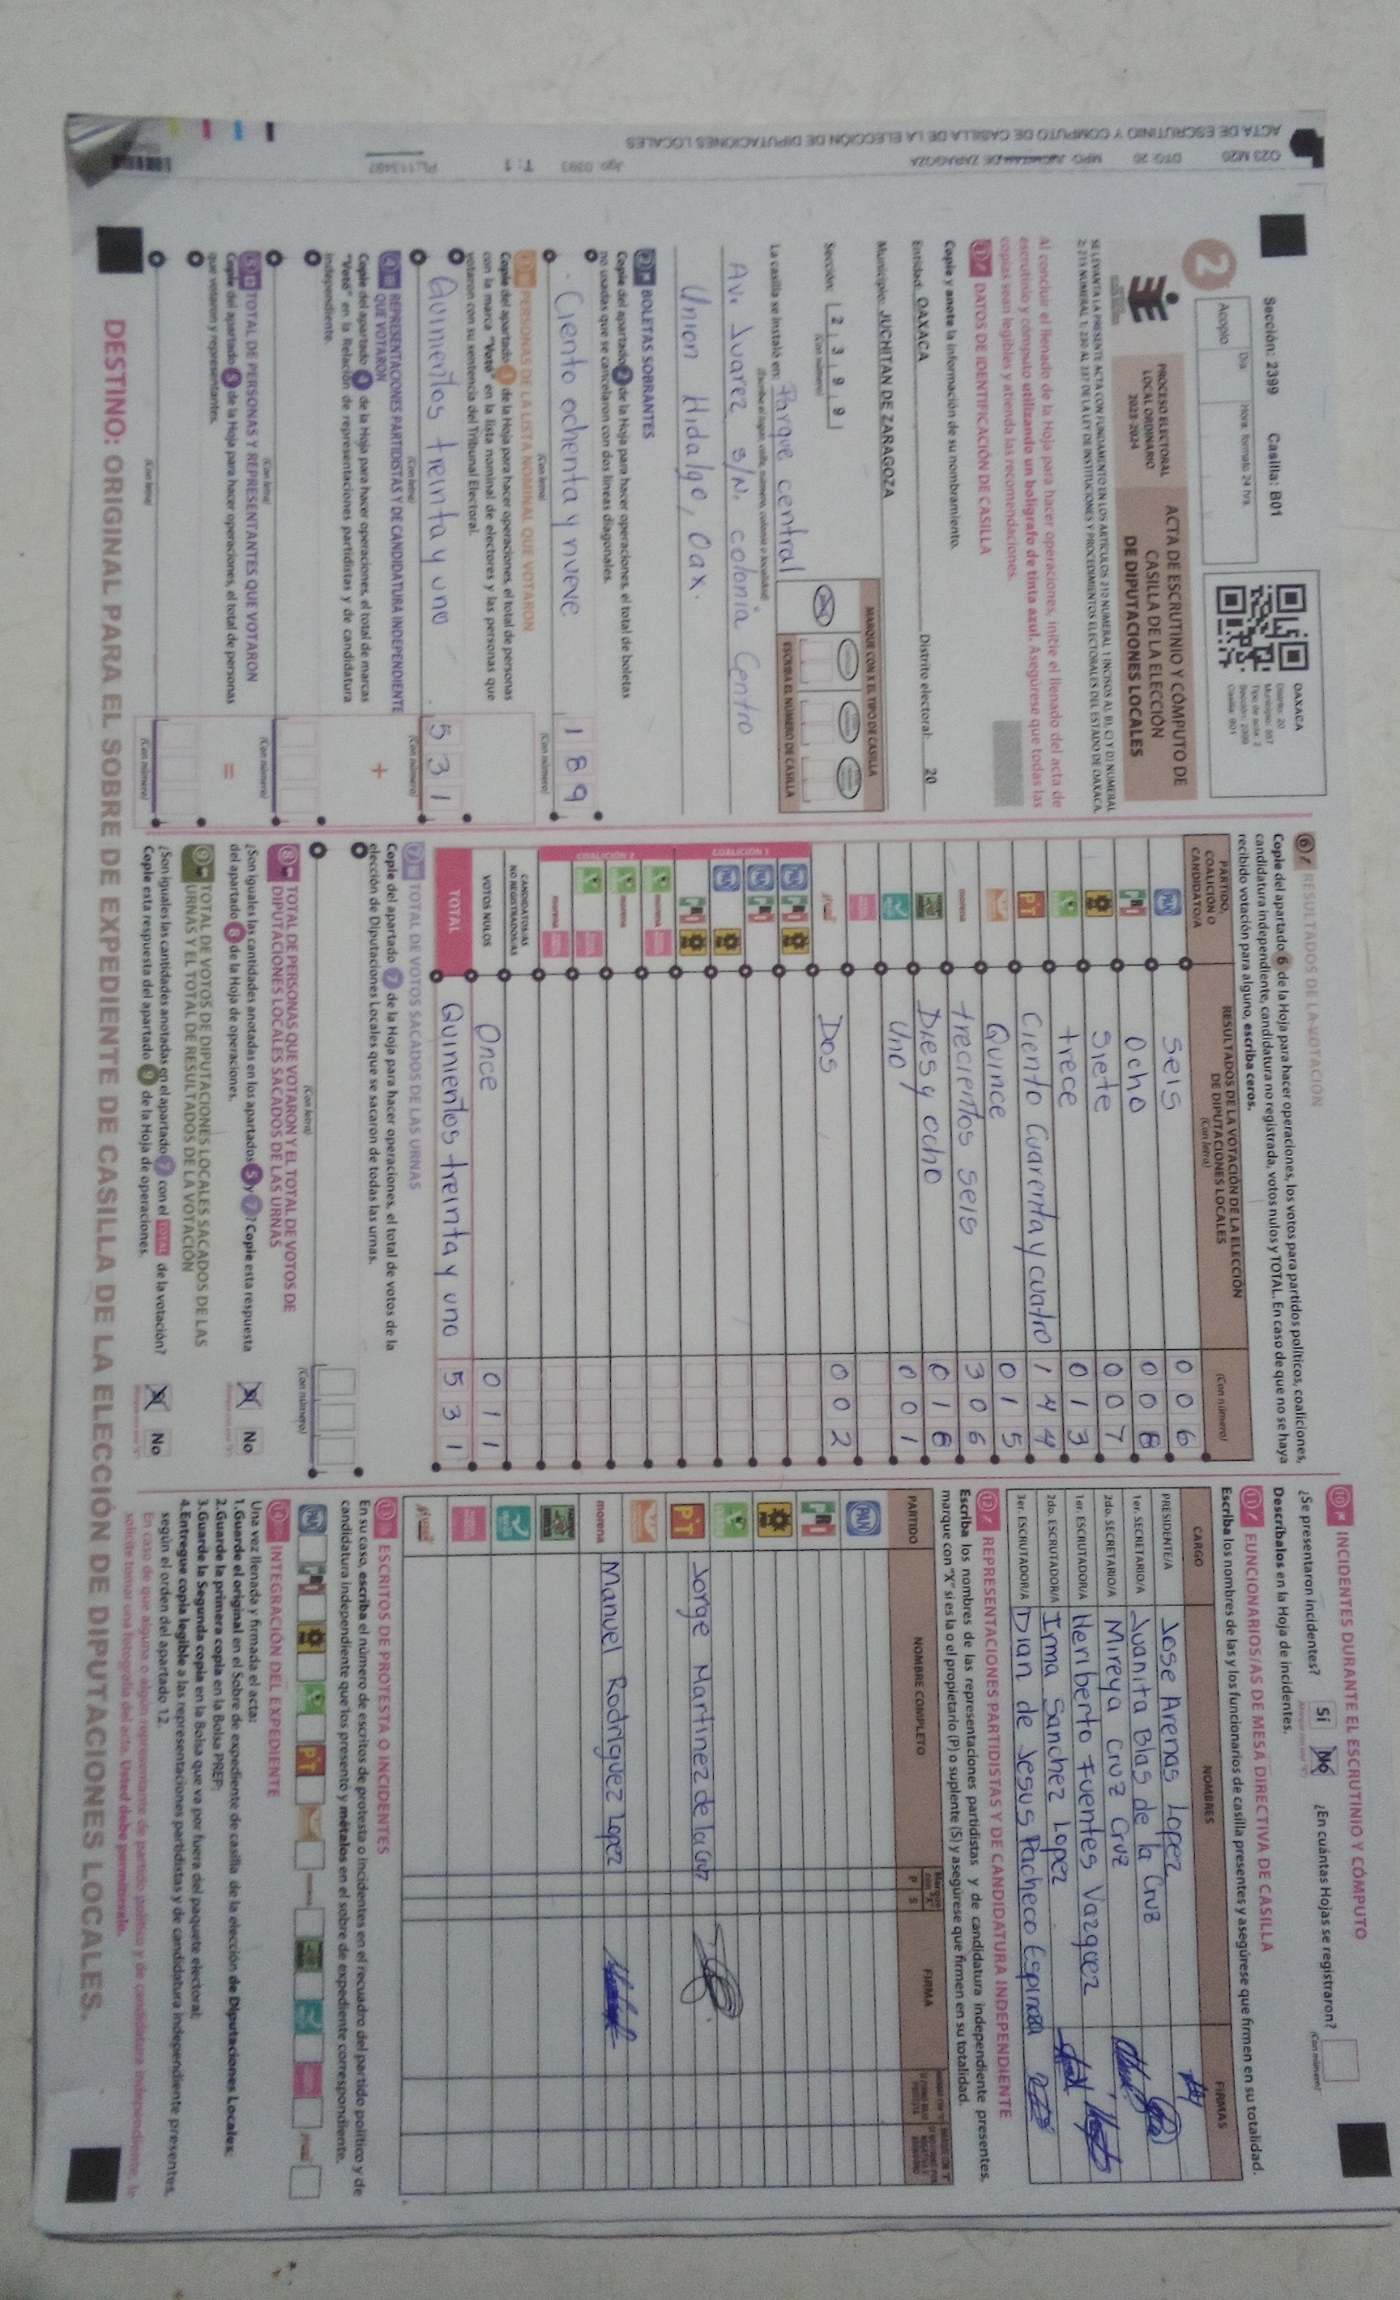 Sección: 2399 Casilla: B01
Día Hora formato 24 hrs
Acopio
2
OAXACA
Distrito: 20
Municipio: 557
Tipo de acta: 2
Sección: 2399
Casilla: B01
PROCESO ELECTORAL
LOCAL ORDINARIO
2023-2024
ACTA DE ESCRUTINIO Y CÓMPUTO DE
CASILLA DE LA ELECCIÓN
DE DIPUTACIONES LOCALES
Al concluir el llenado de la Hoja para hacer operaciones, inicie el llenado del acta de
escrutinio y cómputo utilizando un bolígrafo de tinta azul. Asegúrese que todas las
copias sean legibles y atienda las recomendaciones.
1 DATOS DE IDENTIFICACIÓN DE CASILLA
Copie y anote la información de su nombramiento.
Entidad: OAXACA Distrito electoral: 20
Municipio: JUCHITAN DE ZARAGOZA
Sección: 2 3 9 9
(Con número)
MARQUE CON X EL TIPO DE CASILLA
ESCRIBA EL NÚMERO DE CASILLA
La casilla se instaló en: Parque central
(Escriba el lugar, calle, número, colonia o localidad)
Av. Juarez S/N. colonia Centro
Union Hidalgo, Oax.
2 BOLETAS SOBRANTES
Copie del apartado 2 de la Hoja para hacer operaciones, el total de boletas
no usadas que se cancelaron con dos líneas diagonales.
Ciento ochenta y nueve 189
(Con letra) (Con número)
3 PERSONAS DE LA LISTA NOMINAL QUE VOTARON
Copie del apartado 3 de la Hoja para hacer operaciones, el total de personas
con la marca "Votó" en la lista nominal de electores y las personas que
votaron con su sentencia del Tribunal Electoral.
Quinientos treinta y uno 531
(Con letra) (Con número)
4 REPRESENTACIONES PARTIDISTAS Y DE CANDIDATURA INDEPENDIENTE
QUE VOTARON
Copie del apartado 4 de la Hoja para hacer operaciones, el total de marcas
"Votó" en la Relación de representaciones partidistas y de candidatura
independiente.
+
(Con letra) (Con número)
5 TOTAL DE PERSONAS Y REPRESENTANTES QUE VOTARON
Copie del apartado 5 de la Hoja para hacer operaciones, el total de personas
que votaron y representantes.
=
(Con letra) (Con número)
6 RESULTADOS DE LA VOTACIÓN
Copie del apartado 6 de la Hoja para hacer operaciones, los votos para partidos políticos, coaliciones,
candidatura independiente, candidatura no registrada, votos nulos y TOTAL. En caso de que no se haya
recibido votación para alguno, escriba ceros.
PARTIDO,
COALICIÓN O
CANDIDATO/A
RESULTADOS DE LA VOTACIÓN DE LA ELECCIÓN
DE DIPUTACIONES LOCALES
(Con letra) (Con número)
PAN Seis 006
PRI Ocho 008
PRD Siete 007
trece 013
PT Ciento Cuarenta y cuatro 144
Quince 015
morena trecientos seis 306
Dies y ocho 018
Uno 001
Dos 002
COALICIÓN 1
COALICIÓN 2
CANDIDATOS/AS
NO REGISTRADOS/AS
VOTOS NULOS Once 011
TOTAL Quinientos treinta y uno 531
7 TOTAL DE VOTOS SACADOS DE LAS URNAS
Copie del apartado 7 de la Hoja para hacer operaciones, el total de votos de la
elección de Diputaciones Locales que se sacaron de todas las urnas.
(Con letra) (Con número)
8 TOTAL DE PERSONAS QUE VOTARON Y EL TOTAL DE VOTOS DE
DIPUTACIONES LOCALES SACADOS DE LAS URNAS
¿Son iguales las cantidades anotadas en los apartados 5 y 7? Copie esta respuesta
del apartado 8 de la Hoja de operaciones.
Sí No
9 TOTAL DE VOTOS DE DIPUTACIONES LOCALES SACADOS DE LAS
URNAS Y EL TOTAL DE RESULTADOS DE LA VOTACIÓN
¿Son iguales las cantidades anotadas en el apartado 7 con el TOTAL de la votación?
Copie esta respuesta del apartado 9 de la Hoja de operaciones.
Sí No
10 INCIDENTES DURANTE EL ESCRUTINIO Y CÓMPUTO
¿Se presentaron incidentes? Sí No ¿En cuántas Hojas se registraron?
(Con número)
Descríbalos en la Hoja de incidentes.
11 FUNCIONARIOS/AS DE MESA DIRECTIVA DE CASILLA
Escriba los nombres de las y los funcionarios de casilla presentes y asegúrese que firmen en su totalidad.
CARGO NOMBRES FIRMAS
PRESIDENTE/A Jose Arenas Lopez
1er. SECRETARIO/A Juanita Blas de la Cruz
2do. SECRETARIO/A Mireya Cruz Cruz
1er. ESCRUTADOR/A Heriberto Fuentes Vazquez
2do. ESCRUTADOR/A Irma Sanchez Lopez
3er. ESCRUTADOR/A Dian de Jesus Pacheco Espinoza
12 REPRESENTACIONES PARTIDISTAS Y DE CANDIDATURA INDEPENDIENTE
Escriba los nombres de las representaciones partidistas y de candidatura independiente presentes,
marque con "X" si es la o el propietario (P) o suplente (S) y asegúrese que firmen en su totalidad.
PARTIDO NOMBRE COMPLETO P S FIRMA
PAN
PRI
PRD
PT Jorge Martinez de la Cruz
morena Manuel Rodriguez Lopez
13 ESCRITOS DE PROTESTA O INCIDENTES
En su caso, escriba el número de escritos de protesta o incidentes en el recuadro del partido político y de
candidatura independiente que los presentó y métalos en el sobre de expediente correspondiente.
14 INTEGRACIÓN DEL EXPEDIENTE
Una vez llenada y firmada el acta:
1.Guarde el original en el Sobre de expediente de casilla de la elección de Diputaciones Locales;
2.Guarde la primera copia en la Bolsa PREP;
3.Guarde la Segunda copia en la Bolsa que va por fuera del paquete electoral;
4.Entregue copia legible a las representaciones partidistas y de candidatura independiente presentes,
según el orden del apartado 12.
En caso de que alguna o algún representante de partido político y de candidatura independiente, le
solicite tomar una fotografía del acta, Usted debe permitírselo.
DESTINO: ORIGINAL PARA EL SOBRE DE EXPEDIENTE DE CASILLA DE LA ELECCIÓN DE DIPUTACIONES LOCALES.
ACTA DE ESCRUTINIO Y COMPUTO DE CASILLA DE LA ELECCION DE DIPUTACIONES LOCALES